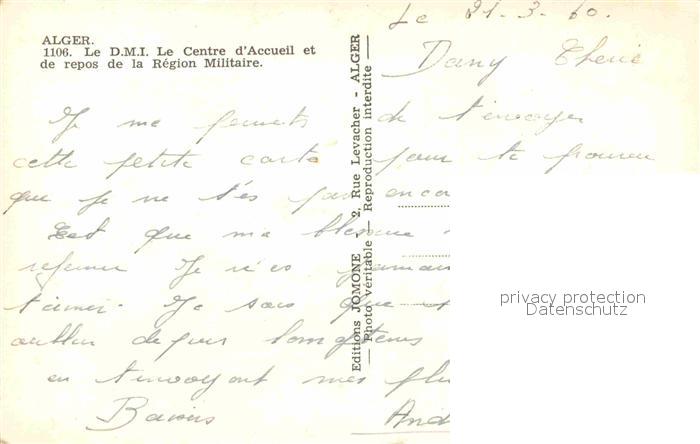 ALGER.
1106. Le D.M.I. Le Centre d'Accueil et
de repos de la Région Militaire.
Editions JOMONE - 2, Rue Levacher - ALGER
Photo véritable — Reproduction interdite
Le 21-3-60.
Dany Cherie
Je me permets de t'envoyer
cette petite carte pour te prouver
que je ne t'es pas
Est que ma blessure
refermer Je n'es jamais
t'aimer. Je sais que
oublier depuis longtemps
en t'envoyant mes
Baisers
And
privacy protection
Datenschutz